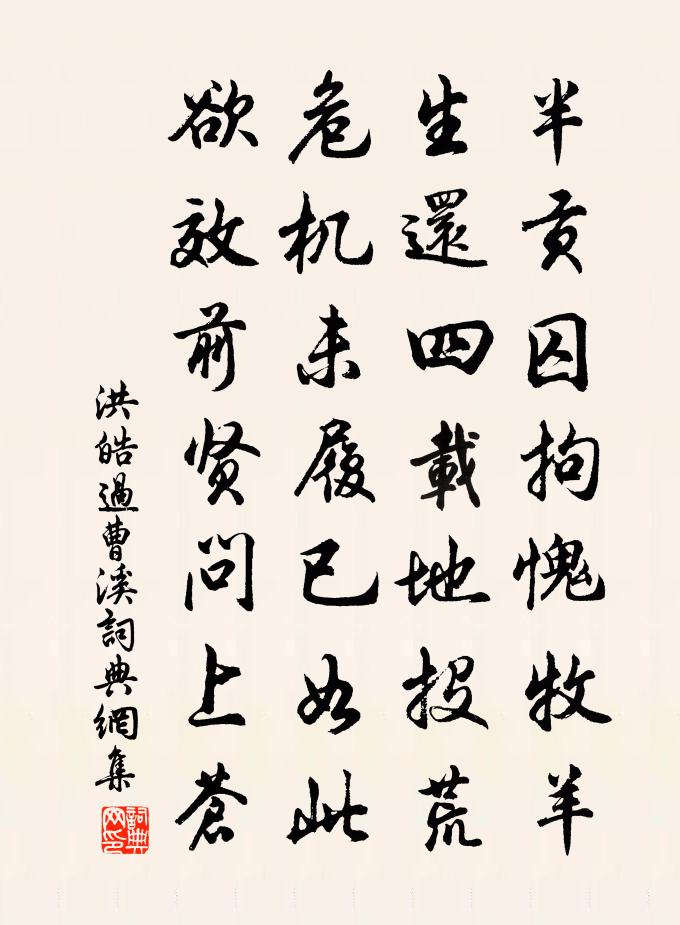 半贡囚拘愧牧羊
生還四載地投荒
危机未履已如此
欲效前贤问上蒼
洪皓過曹溪詞典網集
詞典网印